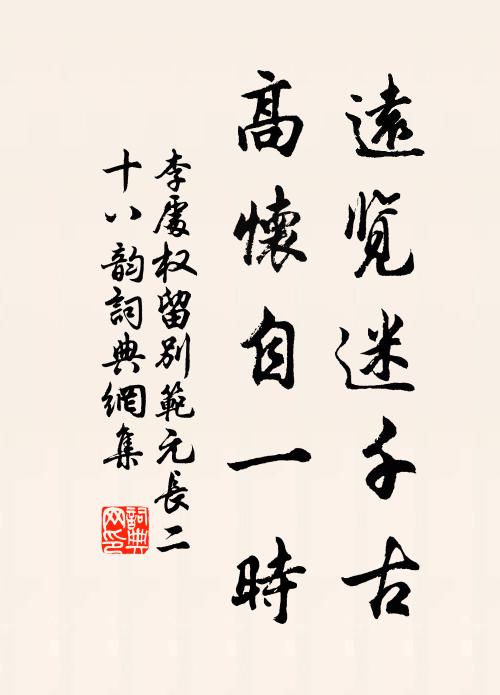 遠覽迷千古
高懷自一時
李處权留别範元長二
十八韵詞典網集
詞典
网印